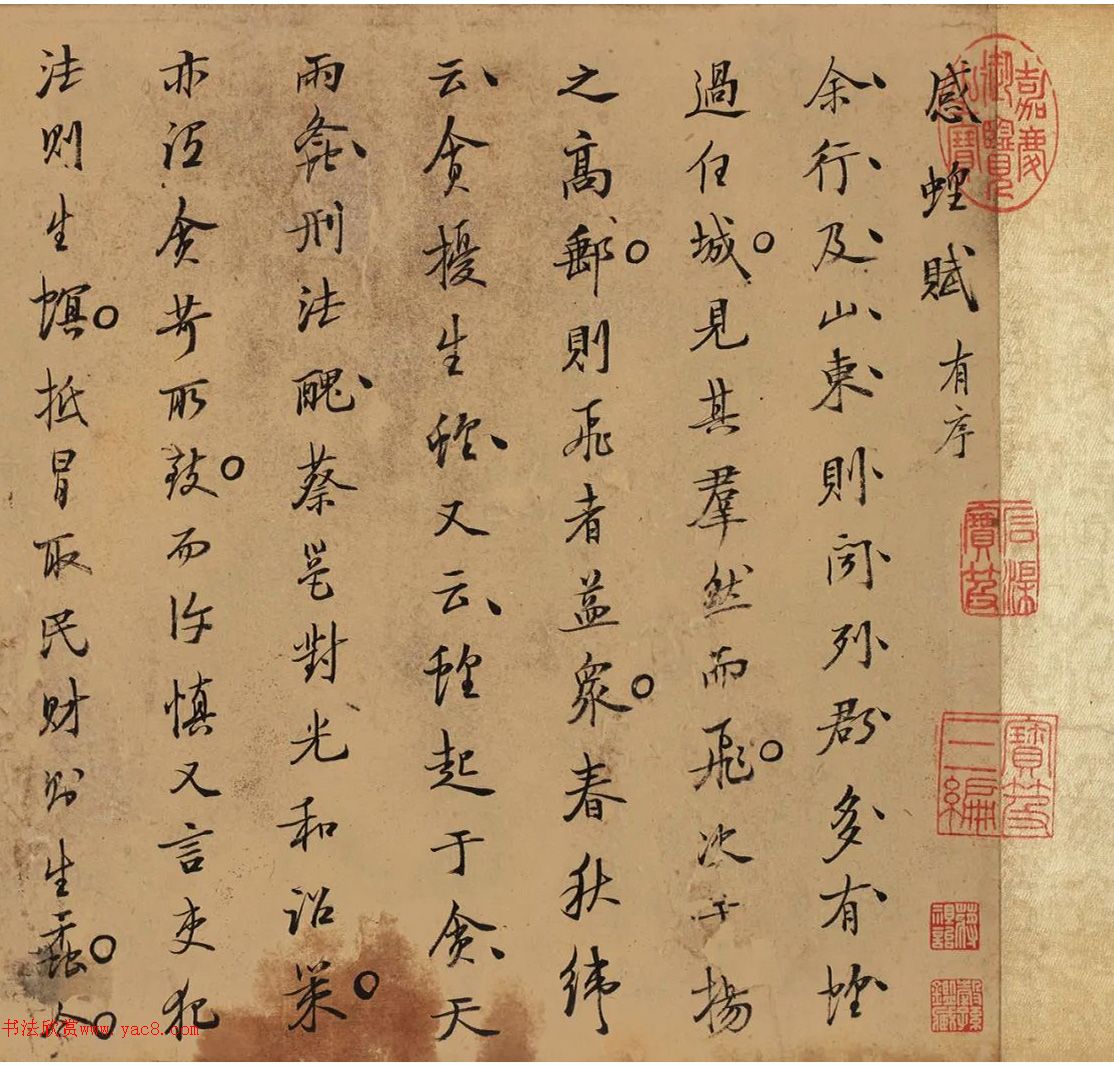 感蝗賦 有序
余行及山東則聞列郡多有蝗
過任城見其羣然而飛次于揚
之高郵則飛者益衆春秋緯
云貪擾生蝗又云蝗起于貪天
雨螽刑法醜蔡邕對光和詔策
亦謂貪苛所致而許慎又言吏犯
法則生螟抵冒取民財則生蟊今
嘉慶御覽之寶
宣統尊親之寶
寶笈三編
书法欣赏www.yac8.com